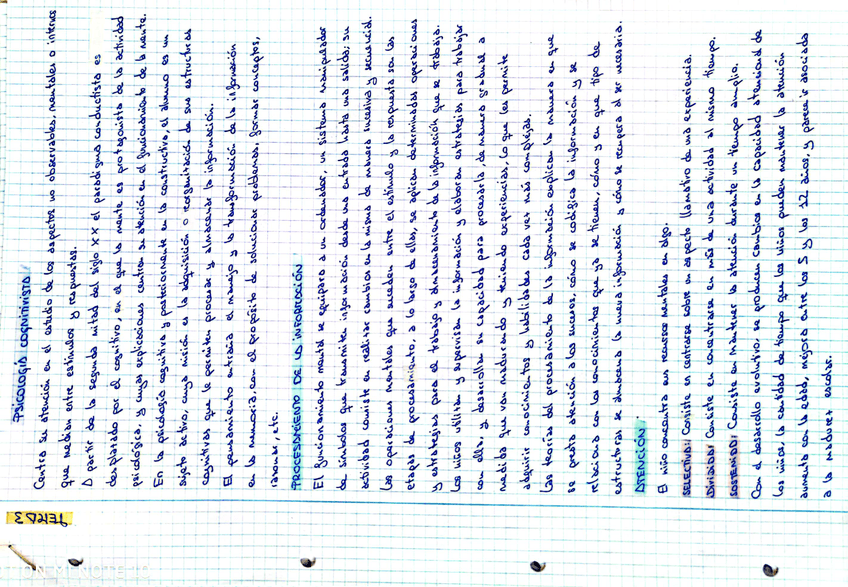 TEMA 3
PSICOLOGÍA COGNITIVISTA
Centra su atención en el estudio de los aspectos no observables, mentales o internos
que median entre estímulos y respuestas.
A partir de la segunda mitad del siglo XX el paradigma conductista es
desplazado por el cognitivo, en el que la mente es protagonista de la actividad
psicológica, y cuyas explicaciones centran su atención en el funcionamiento de la mente.
En la psicología cognitiva y posteriormente en la constructiva, el alumno es un
sujeto activo, cuya misión es la adquisición o reorganización de sus estructuras
cognitivas que le permiten procesar y almacenar la información.
El pensamiento entraña el manejo y la transformación de la información
en la memoria, con el propósito de solucionar problemas, formar conceptos,
razonar, etc.
PROCESAMIENTO DE LA INFORMACIÓN
El funcionamiento mental se equipara a un ordenador, un sistema manipulador
de símbolos que transmiten información desde una entrada hasta una salida; su
actividad consiste en realizar cambios en la misma de manera sucesiva y secuencial.
Las operaciones mentales que suceden entre el estímulo y la respuesta son las
etapas de procesamiento, a lo largo de ellas, se aplican determinadas operaciones
y estrategias para el trabajo y almacenamiento de la información que se trabaja.
Los niños utilizan y supervisan la información y elaboran estrategias para trabajar
con ella, y desarrollan su capacidad para procesarla, de manera gradual a
medida que van madurando y teniendo experiencias, lo que les permite
adquirir conocimientos y habilidades cada vez más complejas.
Las teorías del procesamiento de la información explican la manera en que
se presta atención a los sucesos, cómo se codifica la información y se
relaciona con los conocimientos que ya se tienen, cómo y en que tipo de
estructuras se almacena la nueva información y cómo se recupera al ser necesaria.
ATENCIÓN
El niño concentra sus recursos mentales en algo.
SELECTIVA: Consiste en centrarse sobre un aspecto llamativo de una experiencia.
DIVIDIDA: Consiste en concentrarse en más de una actividad al mismo tiempo.
SOSTENIDA: Consiste en mantener la atención durante un tiempo amplio.
Con el desarrollo evolutivo se producen cambios en la capacidad atencional de
los niños, la cantidad de tiempo que los niños pueden mantener la atención
aumenta con la edad, mejora entre los 5 y los 12 años, y parece ir asociada
a la madurez escolar.